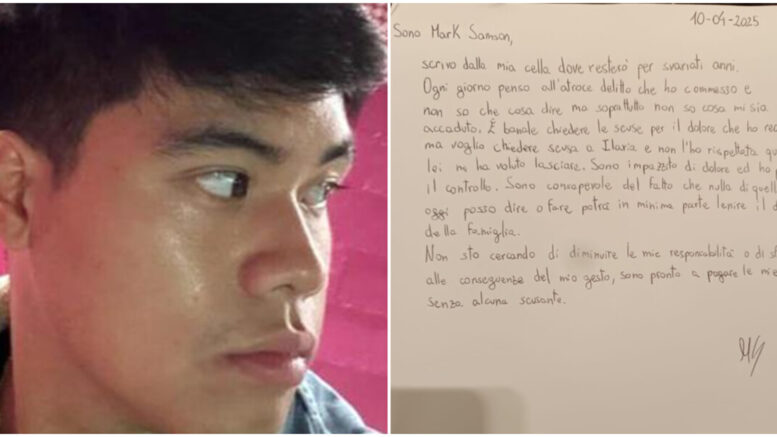 10-04-2025
Sono Mark Samson,
scrivo dalla mia cella dove resterò per svariati anni.
Ogni giorno penso all'atroce delitto che ho commesso e
non so che cosa dire ma sopattutto non so cosa mi sia
accaduto. È banale chiedere le scuse per il dolore che ho
ma voglio chiedere scusa a Ilaria e non l'ho rispettata
lei mi ha voluto lasciare. Sono impazzito di dolore ed ho
il controllo. Sono consapevole del fatto che nulla di
oggi posso dire o fare potrà in minima parte lenire il
della famiglia.
Non sto cercando di diminuire le mie responsabilità o di
alle conseguenze del mio gesto, sono pronto a pagare le mie
senza alcuna scusante.